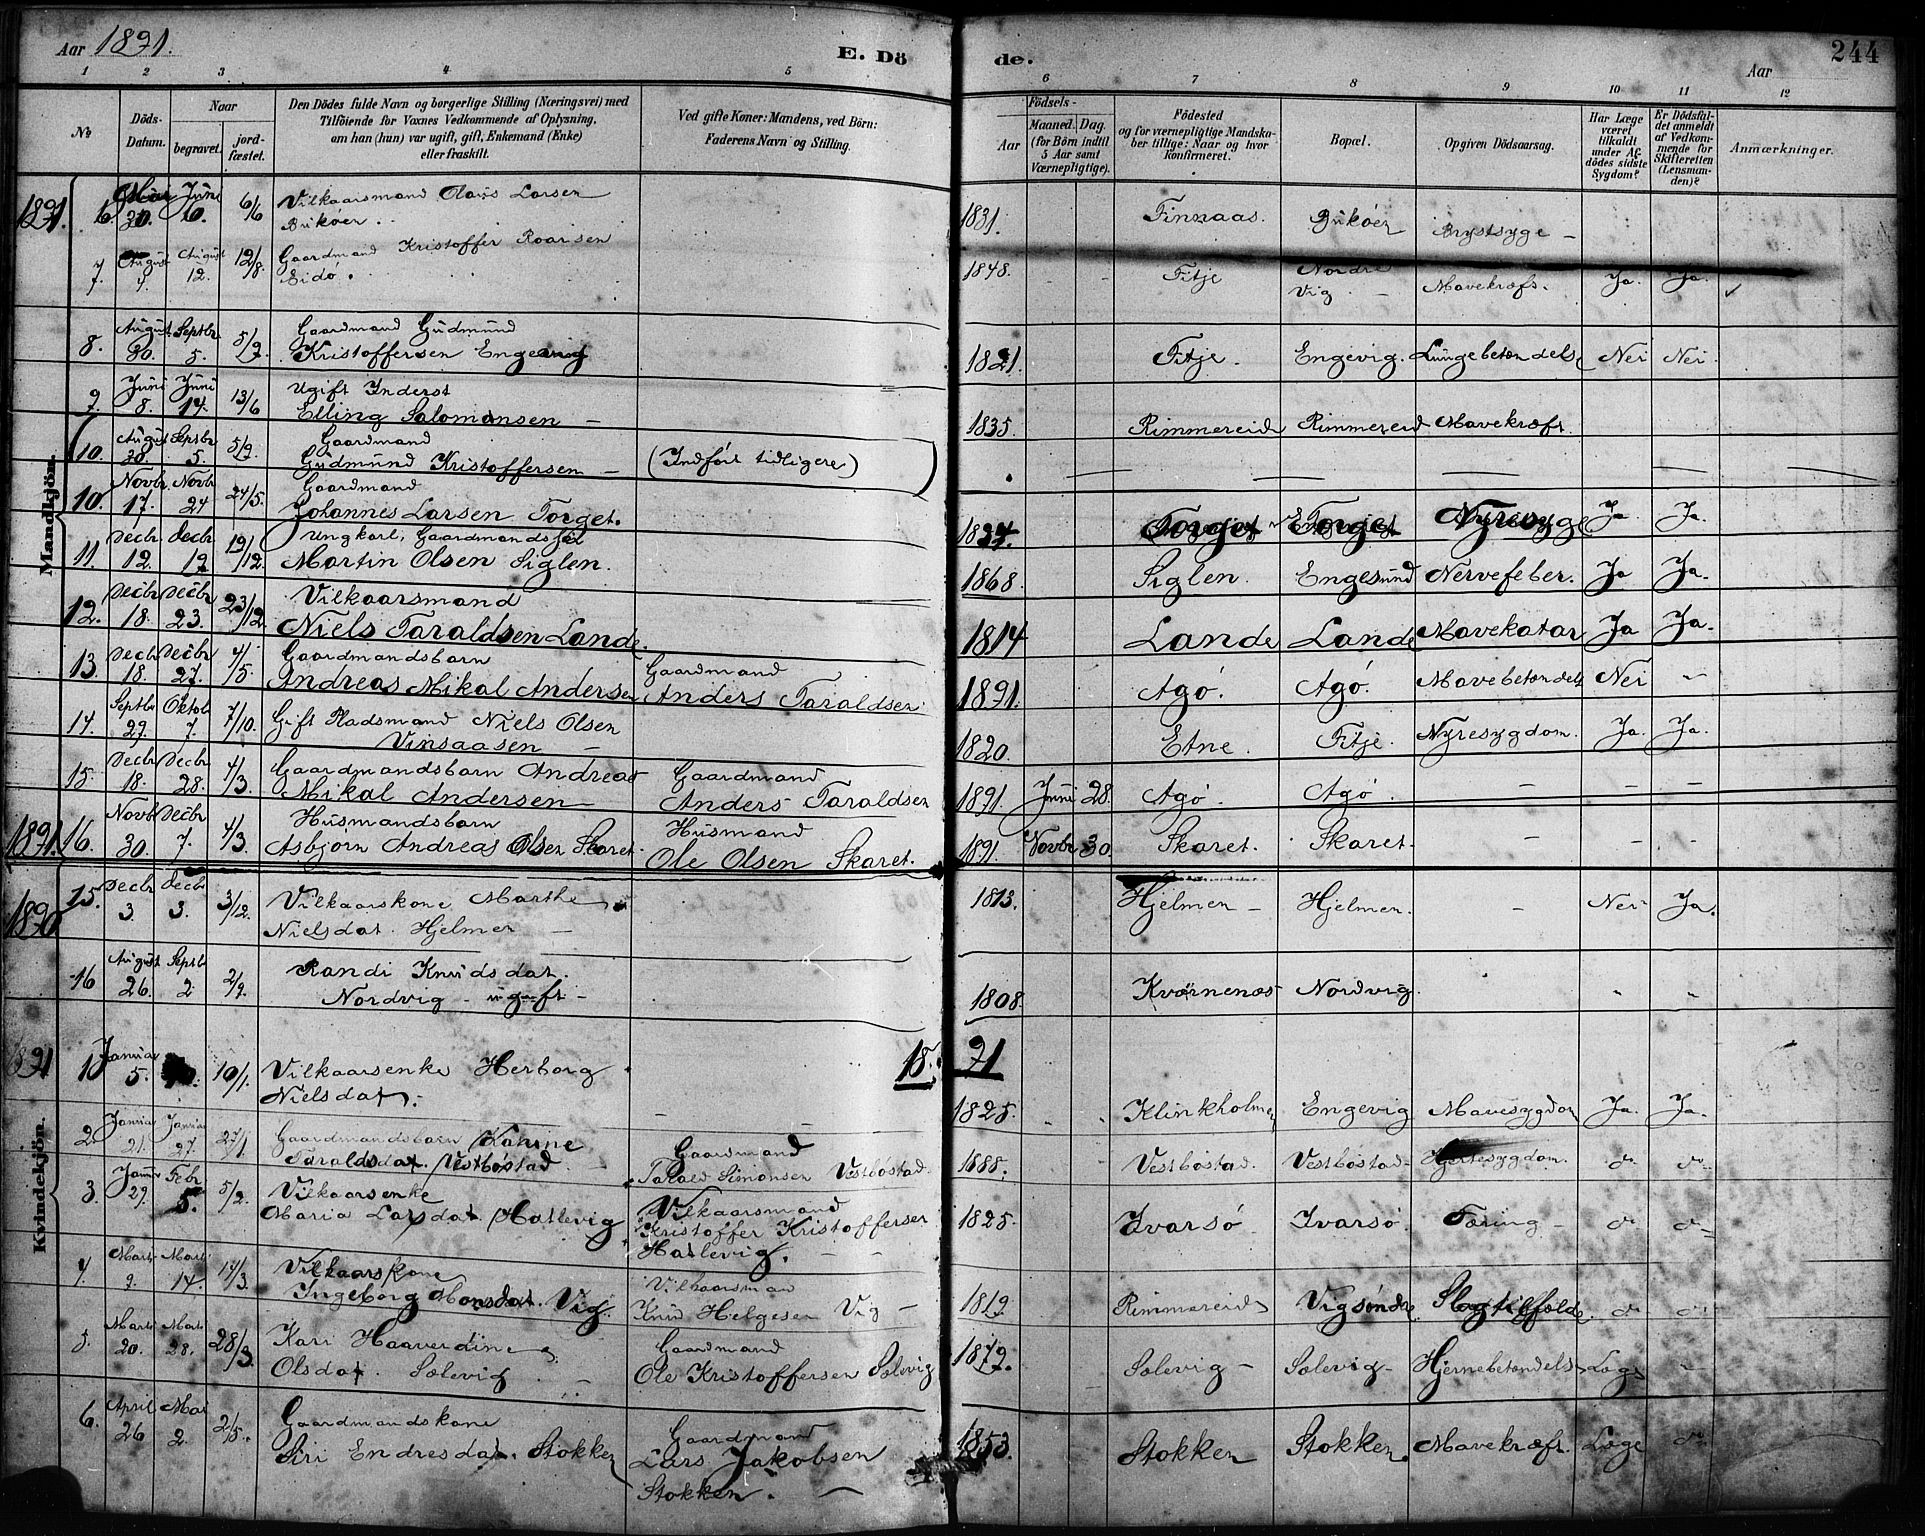 Aar 1891.
E. Dö
de.
Aar
244
1 2 3 4 5 6 7 8 9 10 11 12
No
Döds-
Datum.
Naar
begravet.
jord-
fæstet.
Den Dödes fulde Navn og borgerlige Stilling (Næringsvei) med
Tilföiende for Voxnes Vedkommende af Oplysning,
om han (hun) var ugift, gift, Enkemand (Enke)
eller fraskilt.
Ved gifte Koner: Mandens, ved Börn:
Faderens Navn og Stilling.
Födsels-
Aar
Maaned. Dag.
(for Börn indtil
5 Aar samt
Værnepligtige).
Födested
og for værnepligtige Mandska-
ber tillige: Naar og hvor
konfirmeret.
Bopæl.
Opgiven Dödsaarsag.
Har Læge
været
tilkaldt
under Af-
dödes sidste
Sygdom?
Er Dödsfal-
det anmeldt
af Vedkom-
mende for
Skifteretten
(Lensman-
den)?
Anmærkninger.
Mandkjön.
1891. 6. 30. Juni 6. 6/6 Vilkaarsmand Olaus Larsen
Bukøer 1831. Finnaas. Bukøer Brystsyge –
7. August 4. August 12. 12/8. Gaardmand Kristoffer Roarsen
Eidø. 1848. Fitje Nordre
Vig – Mavekræft. Ja. Ja.
8. August 30. Septbr 5. 5/9. Gaardmand Gudmund
Kristoffersen Engevig 1821. Fitje. Engevig. Lungebetændelse Nei Nei.
9. Juni 8. Juni 14. 13/6 Ugift Inderst
Elling Salomonsen – 1835. Rimmereid Rimmereid Mavekræft.
(10. August 30. Septbr 5. 5/9. Gaardmand
Gudmund Kristoffersen – (Indført tidligere)
10. Novbr 17. Novbr 24 24/5. Gaardmand
Johannes Larsen Torget. Torget Torget Nyresyge Ja Ja.
11. Decbr 12. Decbr 19 19/12. Ungkarl, Gaardmandsføl
Martin Olsen Siglen. 1868. Siglen. Engesund Nervefeber. Ja Ja.
12. Decbr 18. Decbr 23. 23/12. Vilkaarsmand
Niels Taraldsen Lande. 1814 Lande Lande Mavekatar Ja Ja.
13. Decbr 18. Decbr 27. 4/5. Gaardmandsbarn
Andreas Mikal Andersen Gaardmand
Anders Taraldsen 1891. Agø. Agø. Mavebetændelse Nei –
14. Septbr 29. Oktob 7. 7/10. Gift Pladsmand Niels Olsen
Vinsaasen – 1820. Etne. Fitje. Nyresygdom. Ja. Ja.
15. Decbr 18. Decbr 28. 4/3 Gaardmandsbarn Andreas
Mikal Andersen – Gaardmand
Anders Taraldsen 1891. Juni 28. Agø. Agø. – – –
1891. 16. Novb 30. Decbr 7. 4/3 Husmandsbarn
Asbjørn Andreas Olsen Skaret. Husmand
Ole Olsen Skaret. 1891. Novbr 30. Skaret. Skaret. – – –
Kvindekjön.
1890 15. Decbr 3. Decbr 3. 3/12. Vilkaarskone Marthe
Nielsdat. Hjelmen – 1813. Hjelmen – Hjelmen. – Nei – Ja.
16 August 26. Septb 2 2/9. Randi Knudsdat.
Nordvig – ugift – 1808. Kværnenæs Nordvig. " "
1891
1891 1 Januar 5. 10/1. Vilkaarsenke Herborg
Nielsdat. 1825. Klinkholmen Engevig Mavesygdom Ja. Ja.
2. Januar 21. Januar 27. 27/1 Gaardmandsbarn Karine
Taraldsdat. Vestbøstad Gaardmand
Tarald Simonsen Vestbøstad. 1888. Vestbøstad. Vestbøstad. Hjertesygdom. do do
3. Januar 29. Febr 5. 5/2. Vilkaarsenke
Maria Larsdat. Hatlevig Vilkaarsmand
Kristoffer Kristoffersen
Hatlevig. 1825. Ivarsø Ivarsø. Tæring – do do
4. Marts 9. Marts 14. 14/3. Vilkaarskone
Ingeborg Monsdat. Vig. Vilkaarsman
Knud Helgesen Vig – 1819. Rimmereid Vig søndre Slagtilfælde. do do
5. Marts 20. Marts 28. 28/3 Kari Haaverdine
Olsdat. Solevig – Gaardmand
Ole Kristoffersen Solevig Solevig – Solevig – Hjernebetændelse Læge –
6. April 26 Mai 2. 2/5. Gaardmandskone
Siri Endresdat. Stokken Gaardmand
Lars Jakobsen
Stokken. – 1853. Stokken Stokken. Mavekræft. Læge do